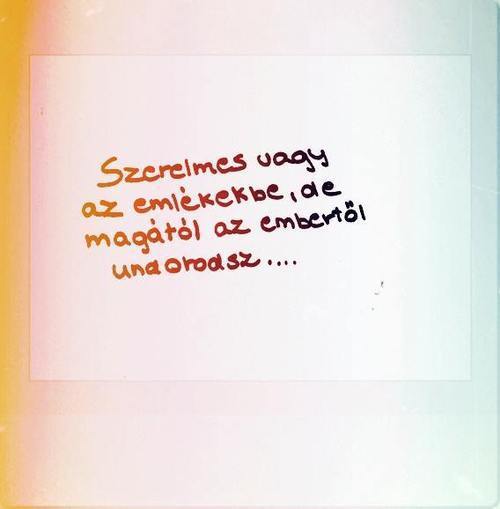 Szerelmes vagy
az emlékekbe, de
magától az embertől
undorodsz....